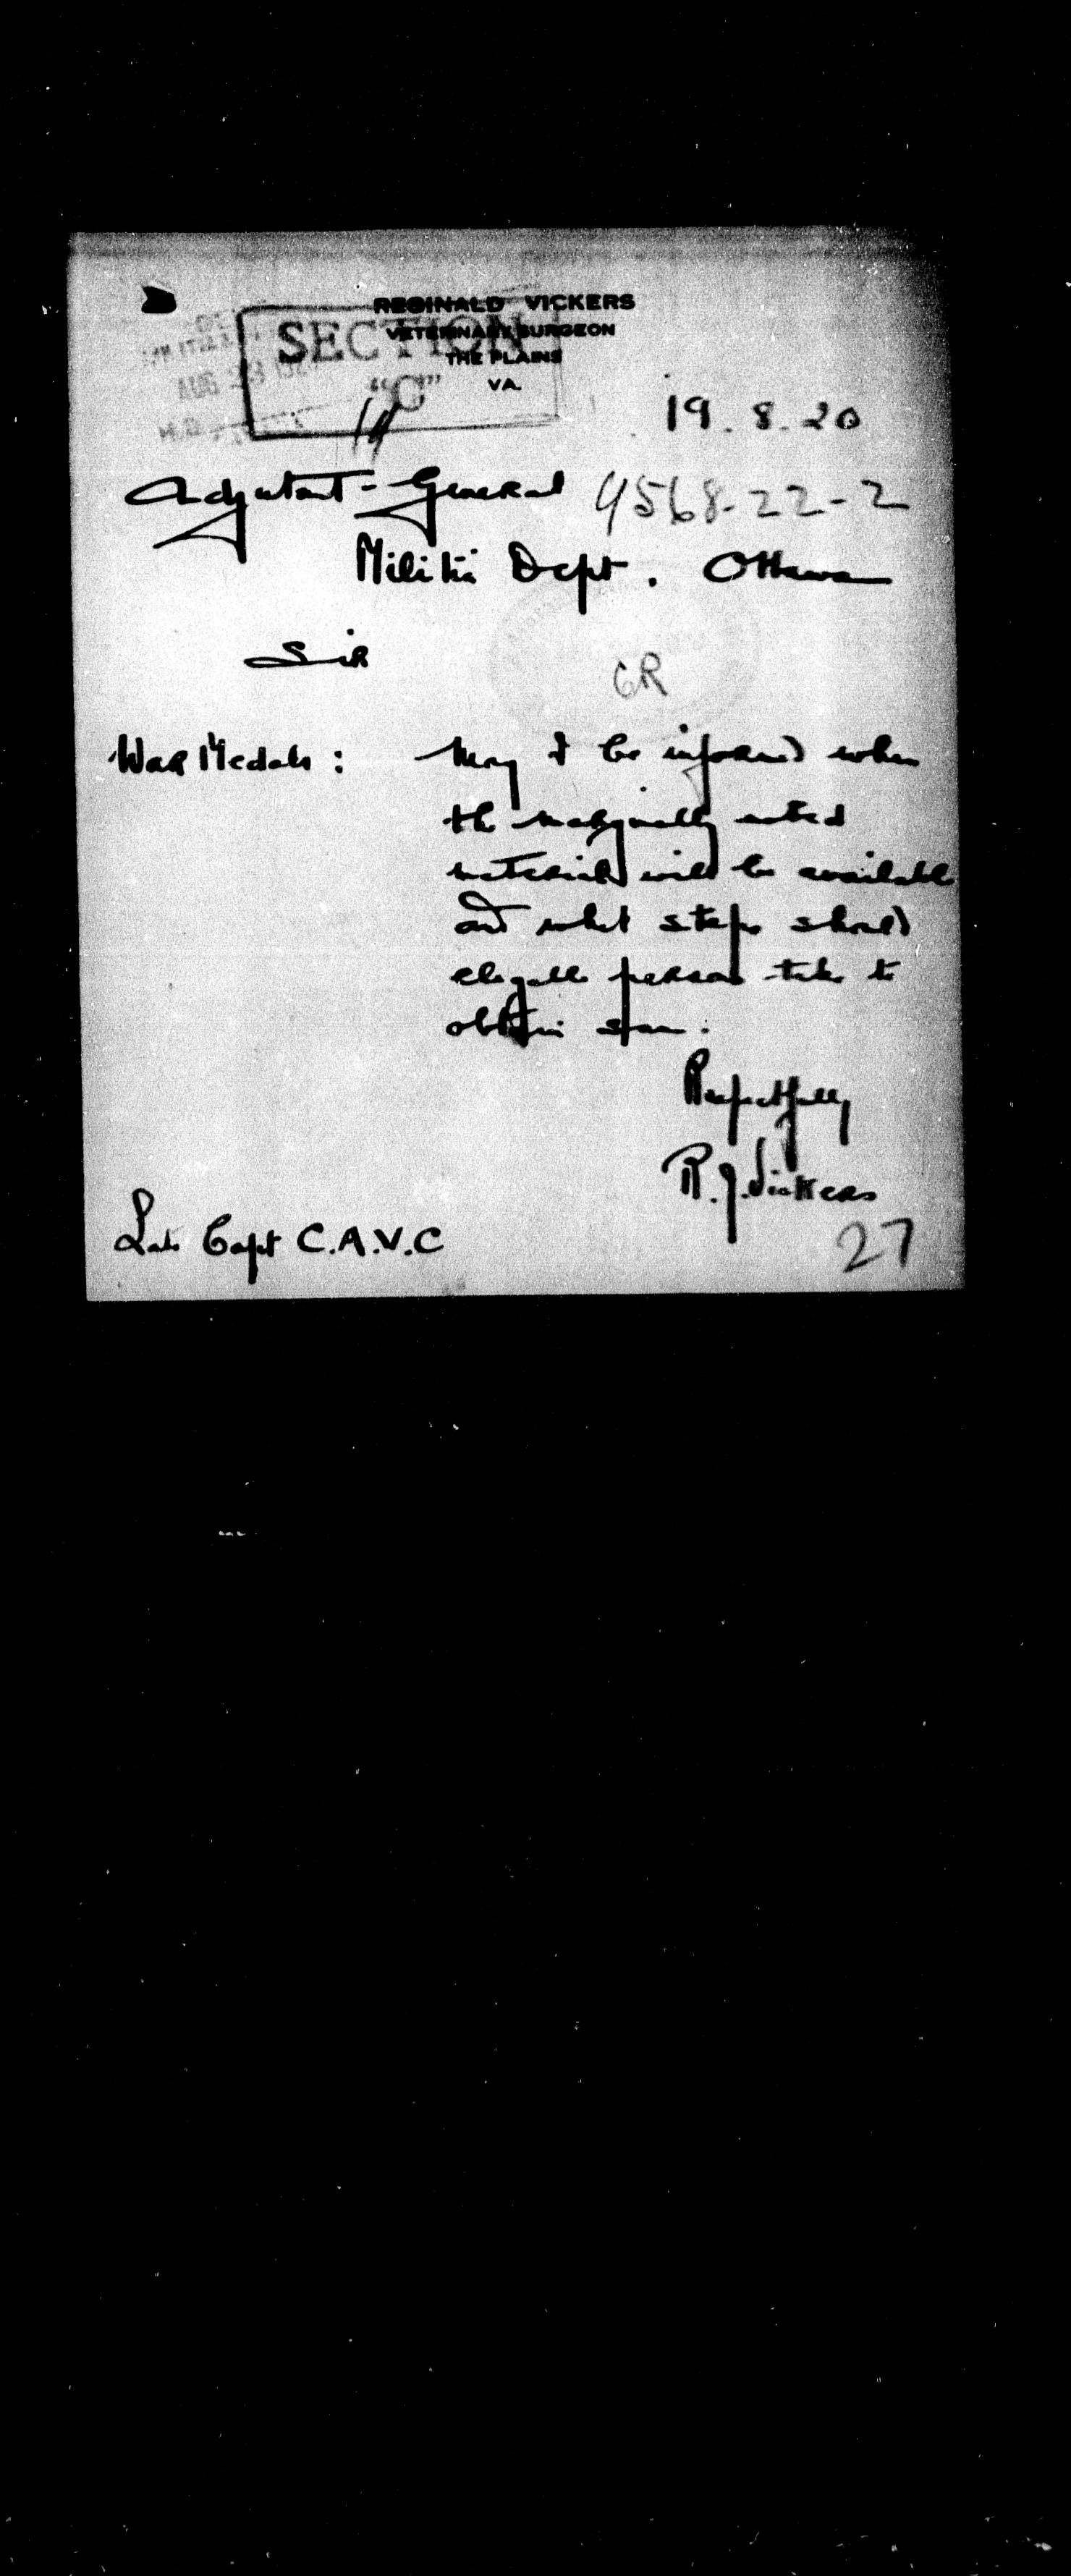 REGINALD VICKERS
VETERINARY SURGEON
THE PLAINS
VA.
SECTION
"C"
AUG 23
19.8.20
Adjutant-General 9568-22-2
Militia Dept. Ottawa
Sir
CR
War Medals: May I be informed when
the marginally noted
material will be available
and what steps should
eligible person take to
obtain same.
Respectfully
R.J. Vickers
Late Capt C.A.V.C
27